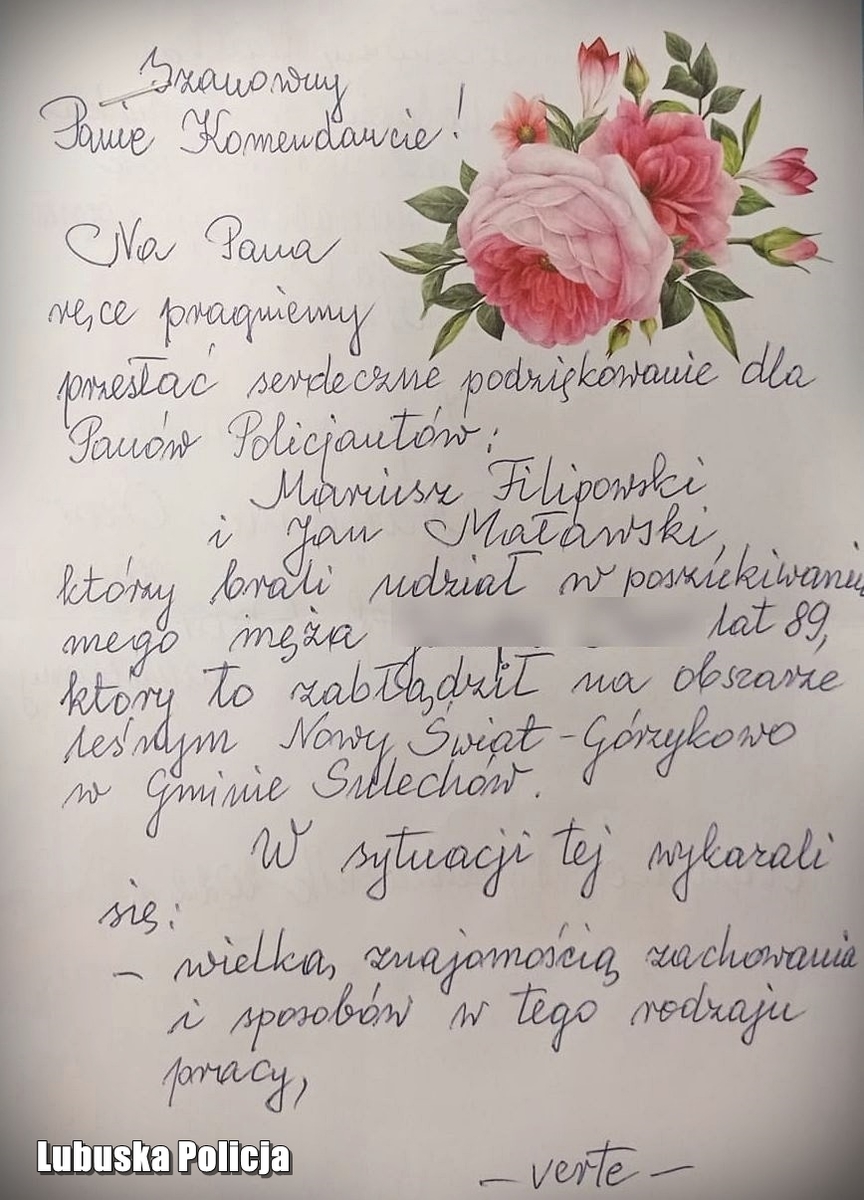 Szanowny
Panie Komendancie!
Na Pana
ręce pragniemy
przesłać serdeczne podziękowanie dla
Panów Policjantów:
Mariusz Filipowski
i Jan Maławski,
którzy brali udział w poszukiwaniu
mego męża lat 89,
który to zabłądził na obszarze
leśnym Nowy Świat - Górzykowo
w Gminie Sulechów.
W sytuacji tej wykazali
się:
- wielką znajomością zachowania
i sposobów w tego rodzaju
pracy,
- verte -
Lubuska Policja